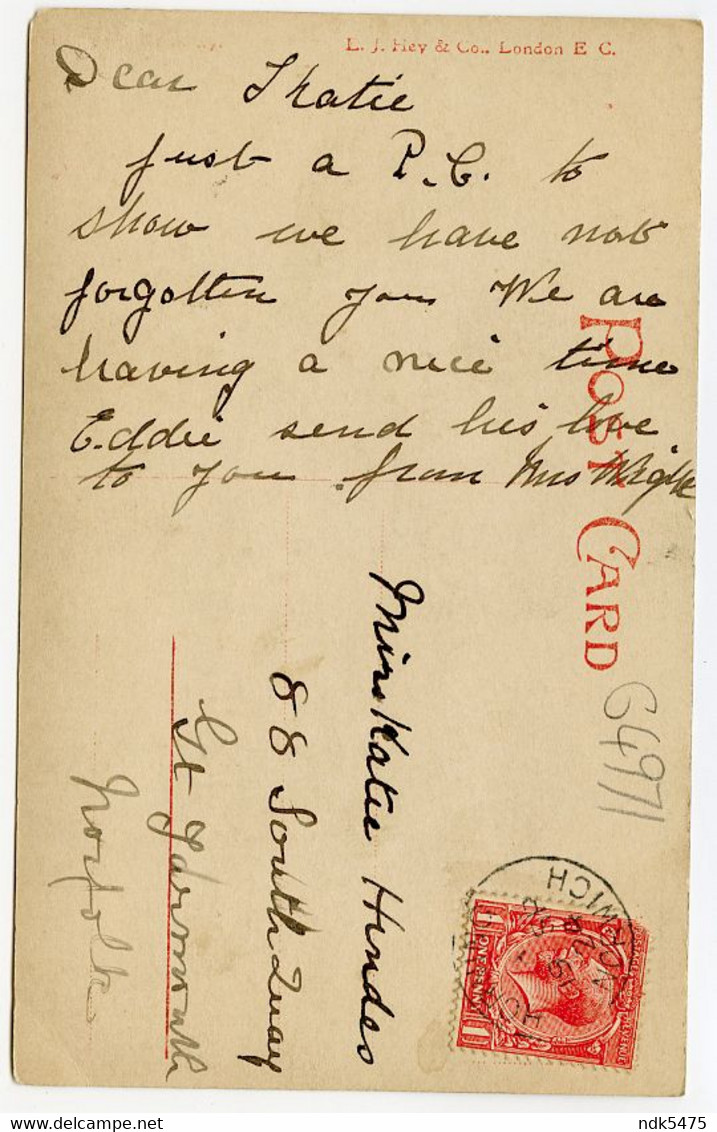 L. J. Hey & Co., London E C.
Dear Katie
just a P.C. to
show we have not
forgotten you We are
having a nice time
Eddie send his love
to you from Mrs Wright
POST CARD
Miss Katie Hindes
88 South Quay
Gt Yarmouth
Norfolk
64971
NORWICH
ndk5475